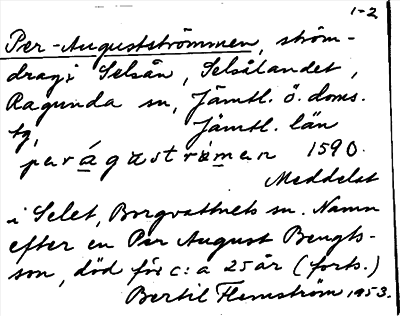 1-2
Per-Augustströmmen, ström-
drag i Selsån, Selsålandet,
Ragunda sn, Jämtl. ö. doms.
tg, Jämtl. län
1590.
Meddelat
i Selet, Borgvattnets sn. Namn
efter en Per August Bengts-
son, död för c:a 25 år (forts.)
Bertil Flemström, 1953.